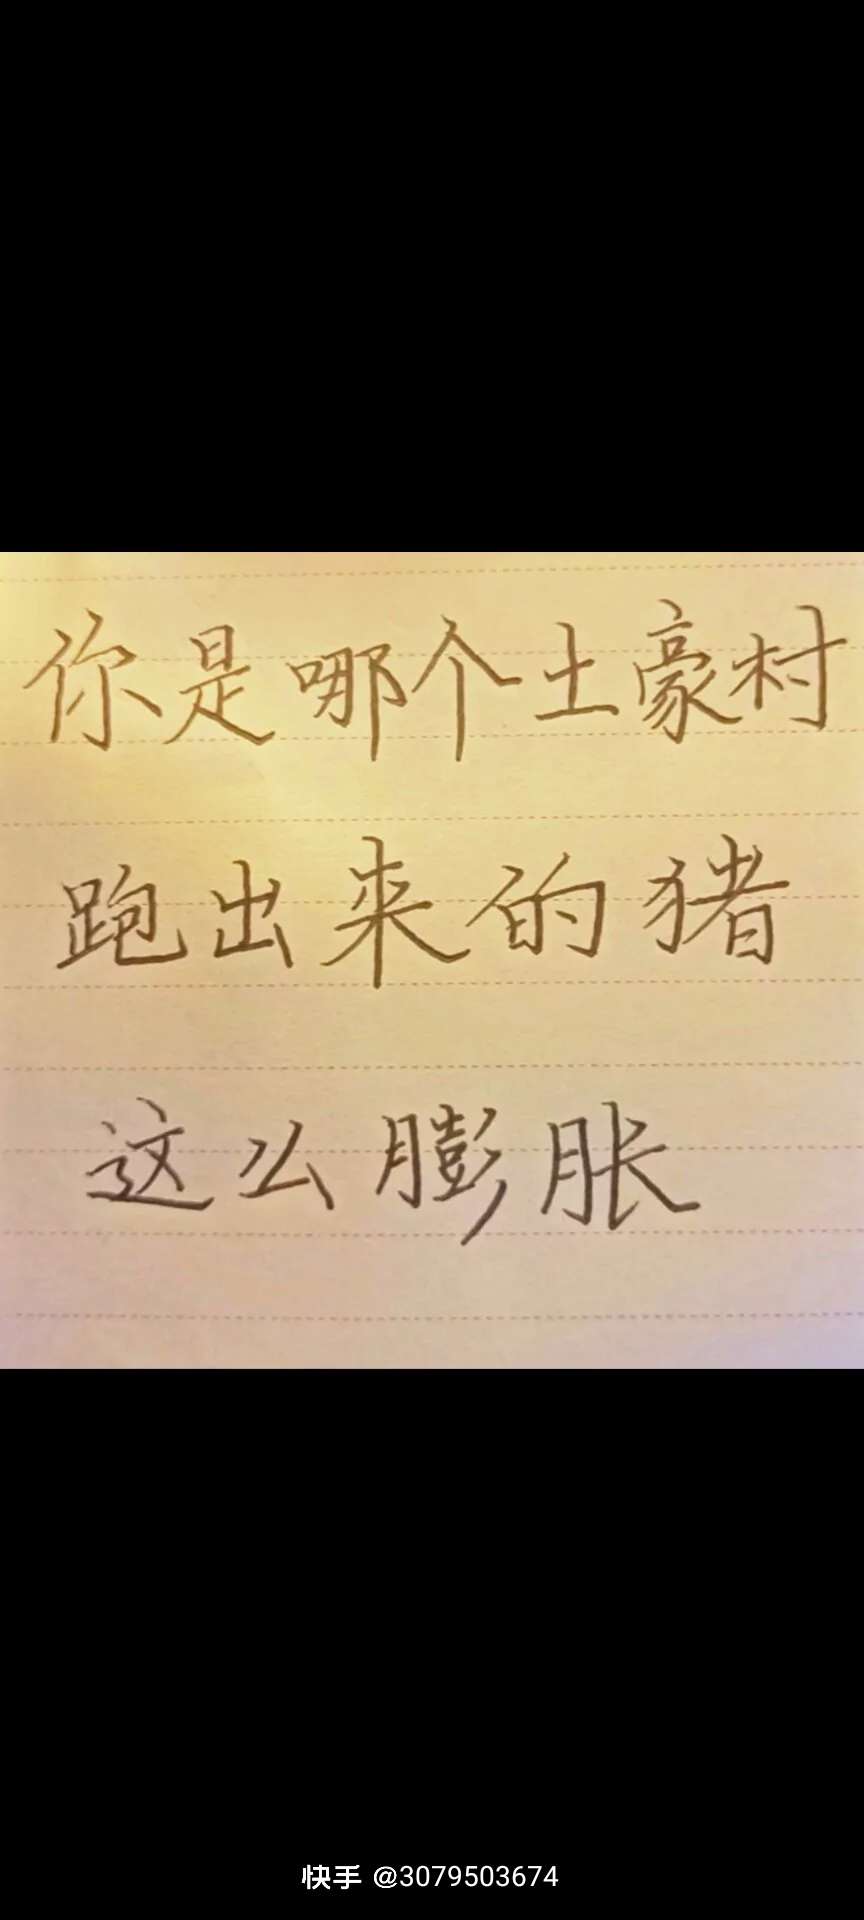 你是哪个土豪村
跑出来的猪
这么膨胀
快手 @3079503674